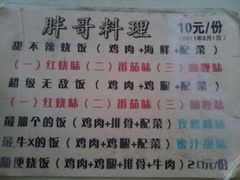 胖哥料理 10元/份
(2011年8月1日)
甜不辣烧饭(鸡肉+海鲜+配菜)
(一)红烧味(二)番茄味(三)咖喱味
超级无敌饭(鸡肉+鸡腿+配菜)
(一)红烧味(二)番茄味(三)咖喱味
最那个的饭(鸡肉+排骨+配菜)孜然咸味
最牛X的饭(鸡肉+鸡腿+配菜)蜜汁甜味
随便烧饭(鸡肉+鸡腿+排骨+牛肉)20元/份